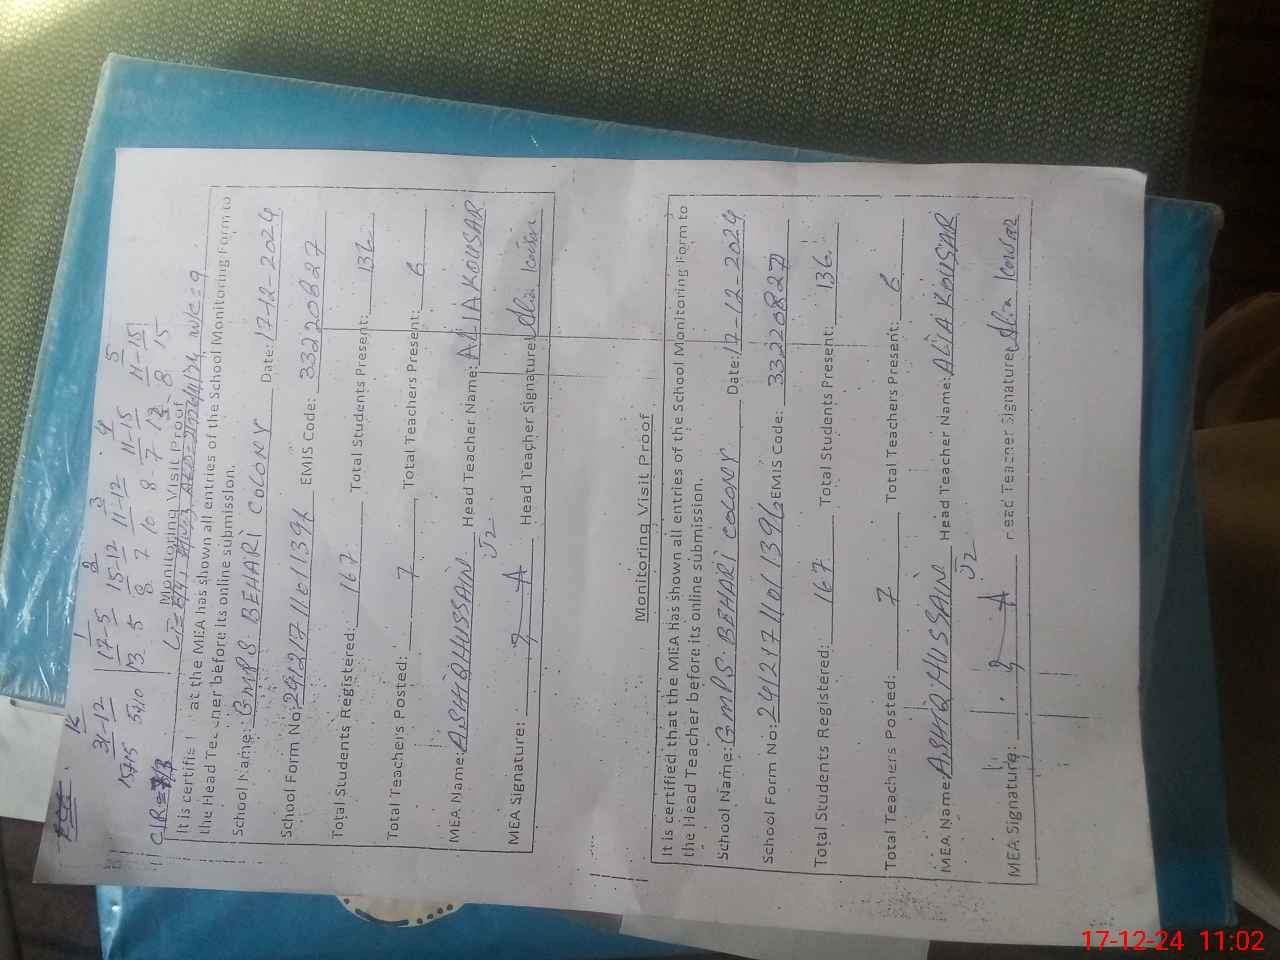 K 1 2 3 4 5
31-12 17-5 15-12 11-12 11-15 11-15
13 5 8 7 10 8 7 13 8 15
Monitoring Visit Proof
It is certifie at the MEA has shown all entries of the School Monitoring Form to
the Head Teacher before its online submission.
School Name: GMPS BEHARI COLONY Date: 17-12-2024
School Form No: 24121711011396 EMIS Code: 33220827
Total Students Registered: 167 Total Students Present: 136
Total Teachers Posted: 7 Total Teachers Present: 6
MEA Name: ASHIQ HUSSAIN Head Teacher Name: ALIA KOUSAR
MEA Signature: Head Teacher Signature: Alia Kousar
Monitoring Visit Proof
It is certified that the MEA has shown all entries of the School Monitoring Form to
the Head Teacher before its online submission.
School Name: GMPS. BEHARI COLONY Date: 17-12-2024
School Form No: 24121711011396 EMIS Code: 33220827
Total Students Registered: 167 Total Students Present: 136
Total Teachers Posted: 7 Total Teachers Present: 6
MEA Name: ASHIQ HUSSAIN Head Teacher Name: ALIA KOUSAR
MEA Signature: Head Teacher Signature: Alia Kousar
17-12-24 11:02